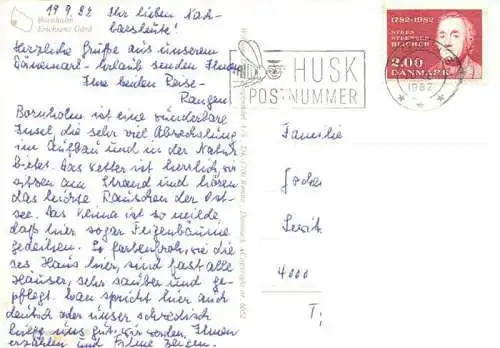 19.9.82 Ihr lieben Nach-
barsleute!
Bornholm
Erichsens Gård
Herzliche Grüße aus unserem
Dänemark-Urlaub senden Ihnen
Ihre beiden Reise-
Rangen.
Bornholm ist eine wunderbare
Insel, die sehr viel Abwechslung
im Aufbau und in der Natur
bietet. Das Wetter ist herrlich, wir
sitzen am Strand und hören
das leichte Rauschen der Ost-
see. Das Klima ist so milde,
daß hier sogar Feigenbäume
gedeihen. So farbenfroh, wie die-
ses Haus hier, sind fast alle
Häuser, sehr sauber und ge-
pflegt. Man spricht hier auch
deutsch oder unser schwedisch
uns gut, wir werden Ihnen
erzählen und Filme zeigen.
HUSK
POSTNUMMER
1982
1782-1982
STEEN
STEENSEN
BLICHER
2.00
DANMARK
Familie
4000